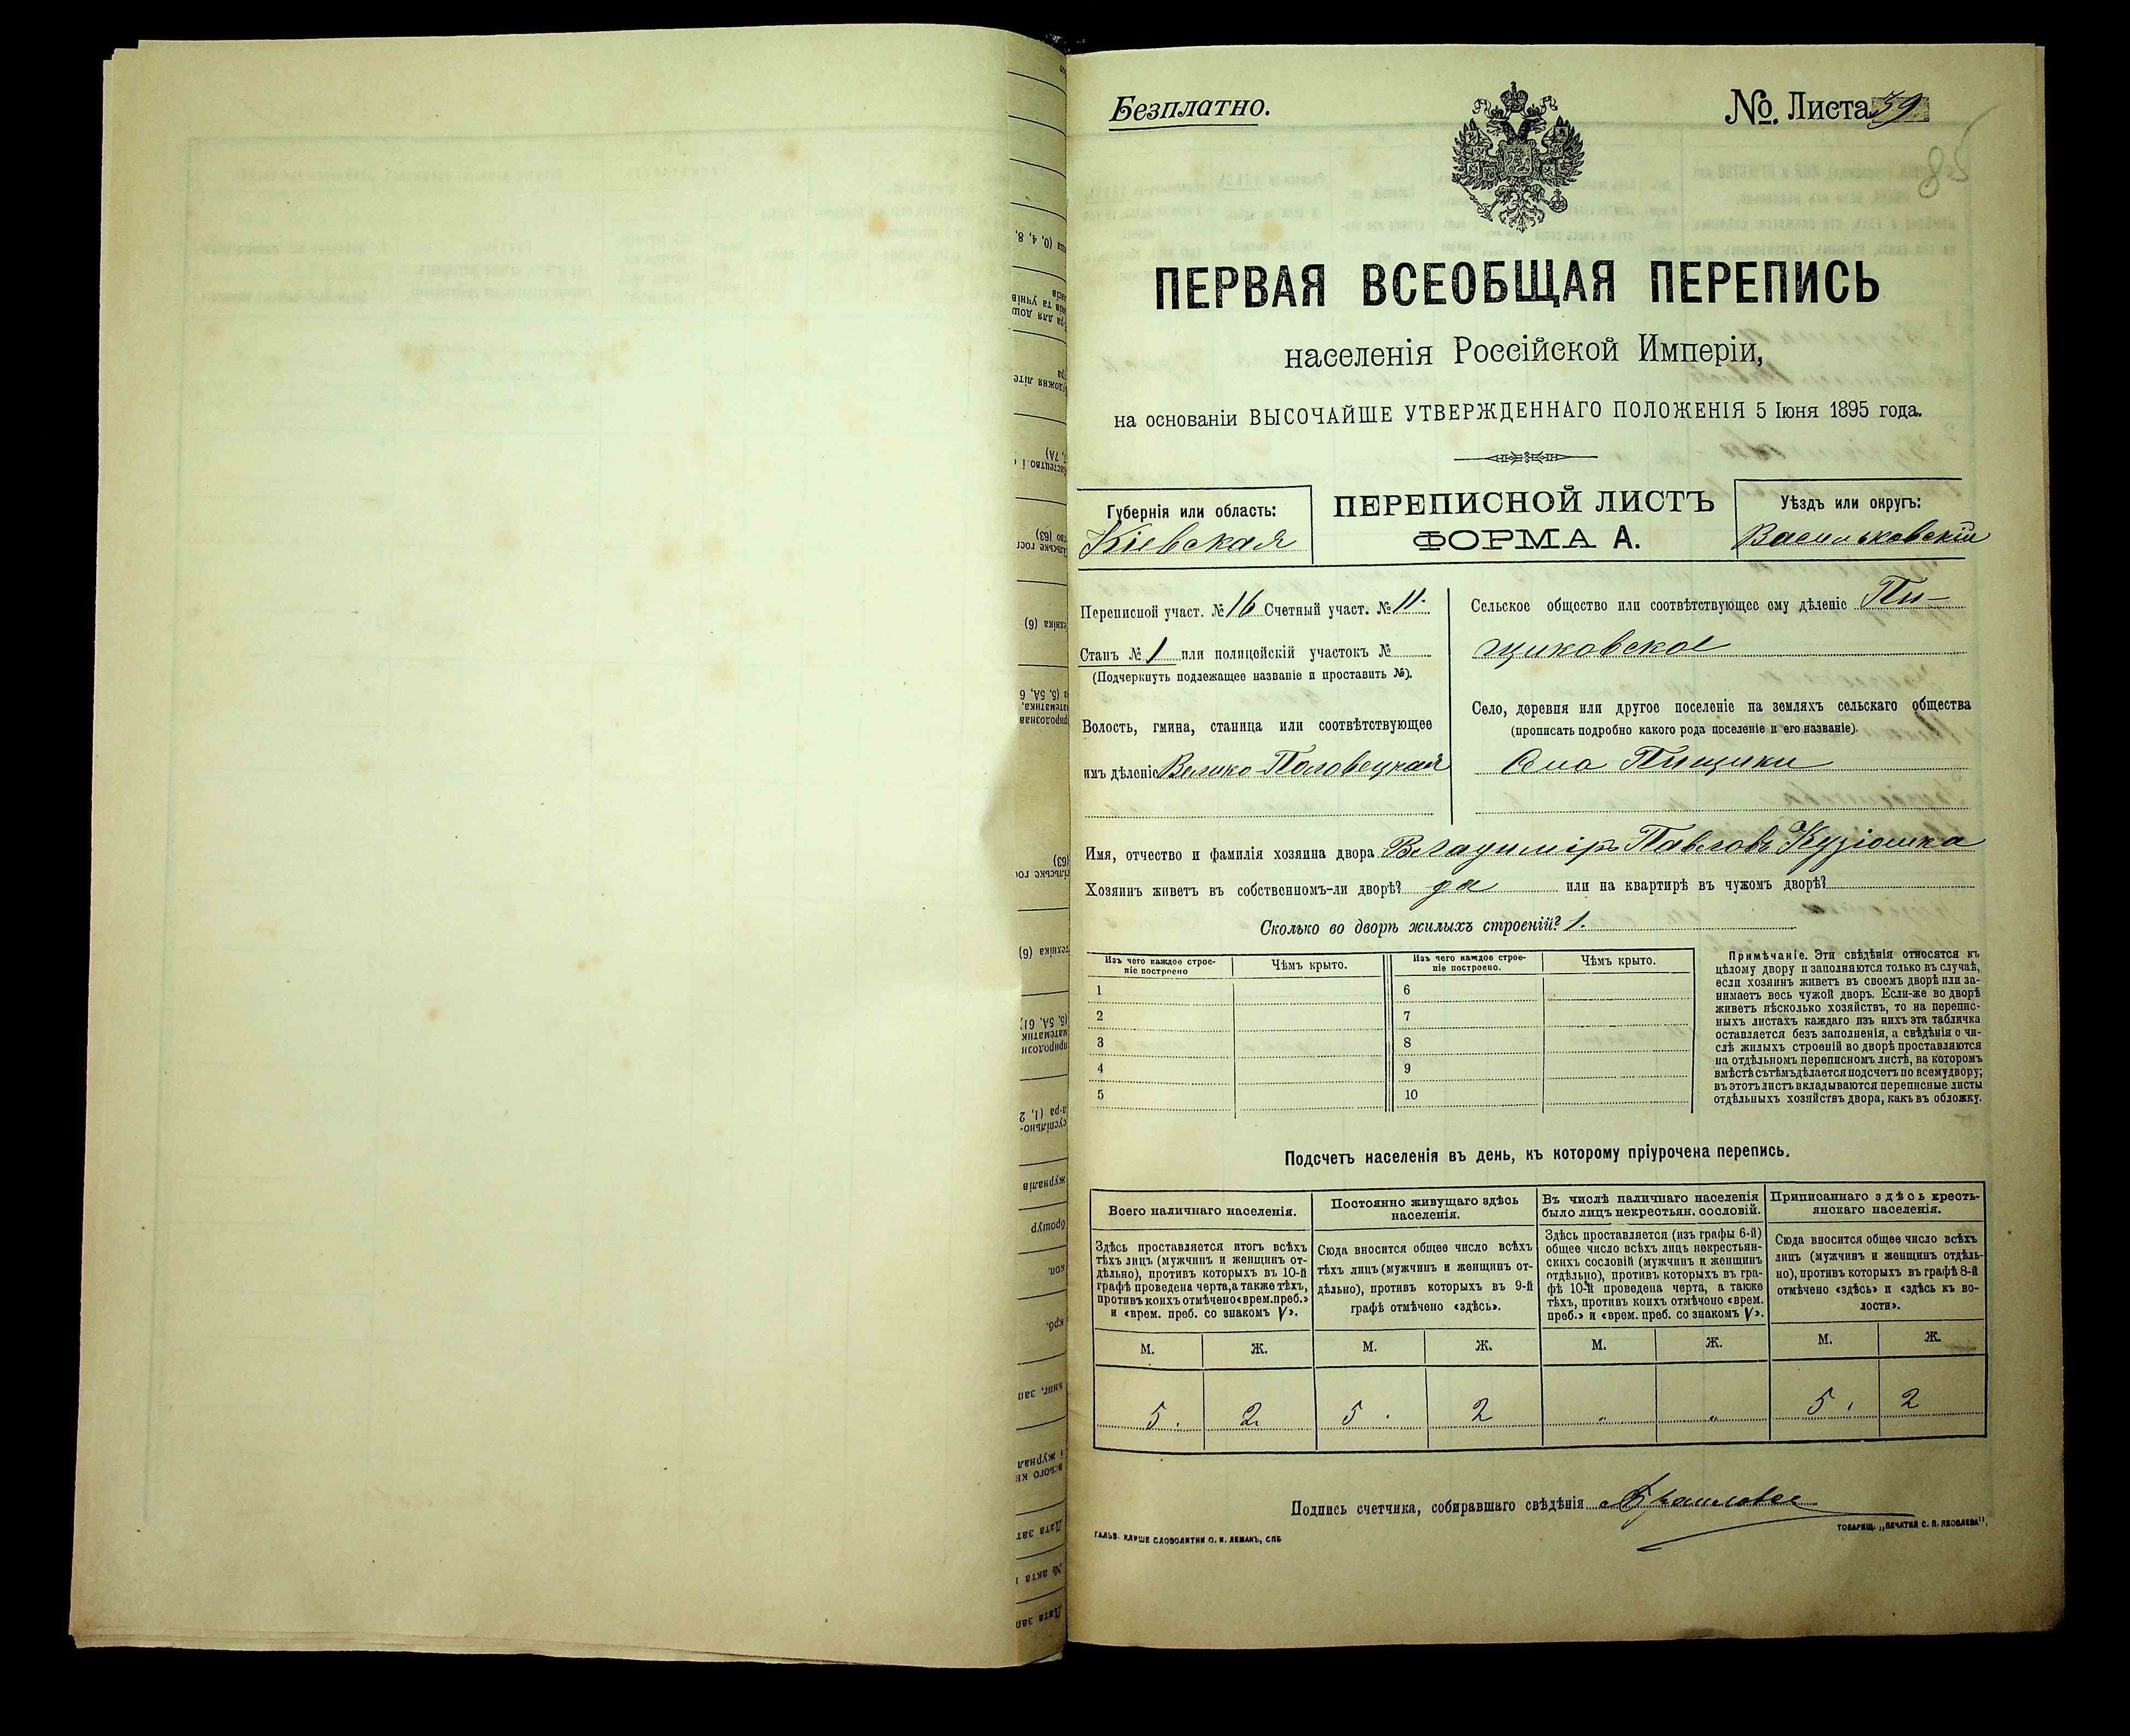 Безплатно.
№ Листа 39
85
ПЕРВАЯ ВСЕОБЩАЯ ПЕРЕПИСЬ
населенія Россійской Имперіи,
на основаніи ВЫСОЧАЙШЕ УТВЕРЖДЕННАГО ПОЛОЖЕНІЯ 5 Іюня 1895 года.
Губернія или область:
Кіевская
ПЕРЕПИСНОЙ ЛИСТЪ
ФОРМА А.
Уѣздъ или округъ:
Васильковскій
Переписной участ. № 16 Счетный участ. № 11.
Станъ № 1 или полицейскій участокъ №
(Подчеркнуть подлежащее названіе и проставить №).
Волость, гмина, станица или соотвѣтствующее
имъ дѣленіе Велико-Половецкая
Сельское общество или соотвѣтствующее ему дѣленіе Пи-
щиковское
Село, деревня или другое поселеніе на земляхъ сельскаго общества
(прописать подробно какого рода поселеніе и его названіе).
Пищики
Имя, отчество и фамилія хозяина двора Владиміръ Павловъ Кузіомка
Хозяинъ живетъ въ собственномъ-ли дворѣ? да или на квартирѣ въ чужомъ дворѣ?
Сколько во дворѣ жилыхъ строеній? 1.
Изъ чего каждое строе-
ніе построено
Чѣмъ крыто.
Изъ чего каждое строе-
ніе построено.
Чѣмъ крыто.
1 6
2 7
3 8
4 9
5 10
Примѣчаніе. Эти свѣдѣнія относятся къ
цѣлому двору и заполняются только въ случаѣ,
если хозяинъ живетъ въ своемъ дворѣ или за-
нимаетъ весь чужой дворъ. Если-же во дворѣ
живетъ нѣсколько хозяйствъ, то на перепис-
ныхъ листахъ каждаго изъ нихъ эта табличка
оставляется безъ заполненія, а свѣдѣнія о чи-
слѣ жилыхъ строеній во дворѣ проставляются
на отдѣльномъ переписномъ листѣ, на которомъ
вмѣстѣ съ тѣмъ дѣлается подсчетъ по всему двору;
въ этотъ листъ вкладываются переписные листы
отдѣльныхъ хозяйствъ двора, какъ въ обложку.
Подсчетъ населенія въ день, къ которому пріурочена перепись.
Всего наличнаго населенія.
Здѣсь проставляется итогъ всѣхъ
тѣхъ лицъ (мужчинъ и женщинъ от-
дѣльно), противъ которыхъ въ 10-й
графѣ проведена черта, а также тѣхъ,
противъ коихъ отмѣчено «врем. преб.»
и «врем. преб. со знакомъ V».
Постоянно живущаго здѣсь
населенія.
Сюда вносится общее число всѣхъ
тѣхъ лицъ (мужчинъ и женщинъ от-
дѣльно), противъ которыхъ въ 9-й
графѣ отмѣчено «здѣсь».
Въ числѣ наличнаго населенія
было лицъ некрестьян. сословій.
Здѣсь проставляется (изъ графы 6-й)
общее число всѣхъ лицъ некрестьян-
скихъ сословій (мужчинъ и женщинъ
отдѣльно), противъ которыхъ въ гра-
фѣ 10-й проведена черта, а также
тѣхъ, противъ коихъ отмѣчено «врем.
преб.» и «врем. преб. со знакомъ V».
Приписаннаго здѣсь кресть-
янскаго населенія.
Сюда вносится общее число всѣхъ
лицъ (мужчинъ и женщинъ отдѣль-
но), противъ которыхъ въ графѣ 8-й
отмѣчено «здѣсь» и «здѣсь къ во-
лости».
М. Ж. М. Ж. М. Ж. М. Ж.
5. 2 5. 2 " " 5. 2
Подпись счетчика, собиравшаго свѣдѣнія
ГАЛЬВ. КЛИШЕ СЛОВОЛИТНИ О. И. ЛЕМАНЪ, СПБ
ТОВАРИЩ. „ПЕЧАТНЯ С. П. ЯКОВЛЕВА".